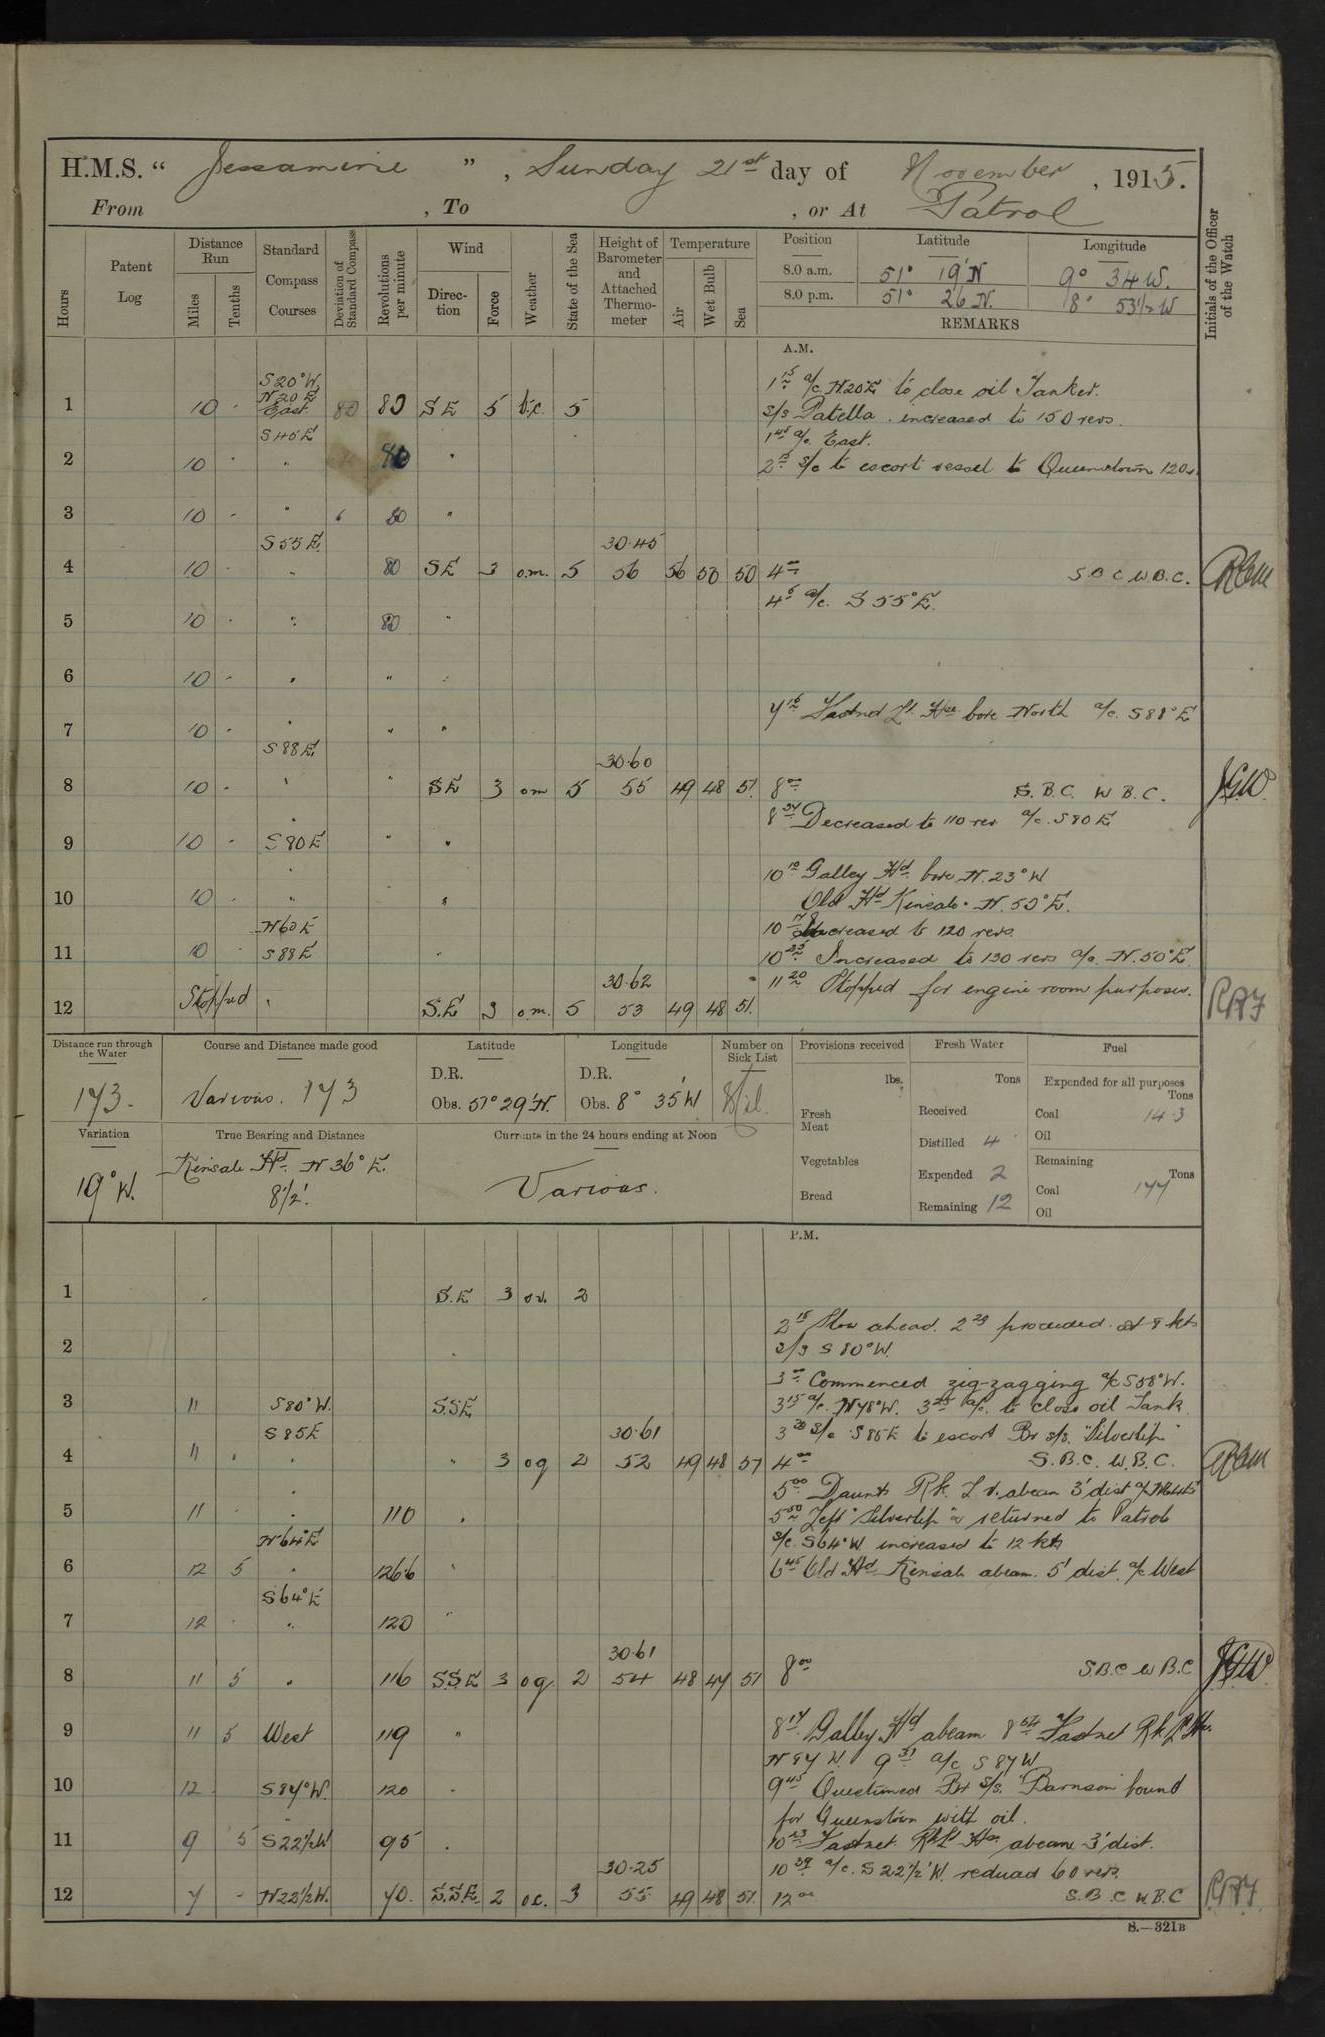 H.M.S. “ Jessamine ” , Sunday 21st day of November , 1915.
From , To , or At Patrol
Hours
Patent Log
Distance Run
Miles
Tenths
Standard Compass Courses
Deviation of Standard Compass
Revolutions per minute
Wind
Direc-tion
Force
Weather
State of the Sea
Height of Barometer and Attached Thermo-meter
Temperature
Air
Wet Bulb
Sea
Position Latitude Longitude
8.0 a.m. 51° 19' N 9° 34 W.
8.0 p.m. 51° 26 N. 8° 53½ W
REMARKS
Initials of the Officer of the Watch
A.M.
S 20° W.
N 20 E
1 10 - East. 80 80 SE 5 b.c. 5
1 15 a/c N 20 E to close oil Tanker.
S/S Patella . increased to 150 revs.
S 45 E
1 45 a/c East.
2 10 - " 80 "
2 15 S/c to escort vessel to Queenstown 120
3 10 - " 80 "
S 55 E. 30.45
4 10 - " 80 SE 3 o.m. 5 56 56 50 50 4 00 S B C W.B.C.
4 5 a/c. S 55° E.
5 10 - " 80 "
6 10 - " " "
7 15 Fastnet Lt. Hse bore North a/c. S 88° E
7 10 - " " "
S 88 E. 30.60
8 10 - " " SE 3 om 5 55 49 48 51. 8 00 S.B.C. W B.C. J.G.W.
8 34 Decreased to 110 rev a/c. S 80 E
9 10 - S 80 E " "
10 10 Galley Hd. bore N. 23° W
10 10 - " "
Old Hd Kinsale N. 50° E.
N 60 E
10 17 Increased to 120 revs.
11 10 - S 88 E "
10 35 Increased to 130 revs a/c. N. 50° E
30.62
11 20 Stopped for engine room purposes.
12 Stopped " S.E 3 o.m. 5 53 49 48 51.
Distance run through the Water
173.
Course and Distance made good
Various. 173
Latitude
D.R.
Obs. 51° 29' N.
Longitude
D.R.
Obs. 8° 35' W
Number on Sick List
Nil.
Provisions received
lbs.
Fresh Meat
Vegetables
Bread
Fresh Water
Tons
Received
Distilled 4
Expended 2
Remaining 12
Fuel
Expended for all purposes
Tons
Coal 14.3
Oil
Remaining
Tons
Coal 177
Oil
Variation
19° W.
True Bearing and Distance
Kinsale Hd. N 36° E.
8½'.
Currents in the 24 hours ending at Noon
Various.
P.M.
1 S.E 3 2
2 15 Slow ahead. 2 23 proceeded at 8 kts
2 S 80° W.
3 00 Commenced zig-zagging a/c S 58° W.
3 11 S 80° W. S.S.E
3 15 a/c. N 78° W. 3 25 a/c. to close oil Tank
S 85 E 30.61
3 30 S/c S 85 E to escort Br s/s. "Silverlip"
4 11 . " " 3 og 2 52 49 48 57 4 00 S.B.C. W.B.C.
5 00 Daunts Rk. L.V. abeam 3' dist
5 11 . " 110 "
5 50 Left "Silverlip" & returned to Patrol
N 64 E
S/c. S 64° W increased to 12 kts
6 12 5 " 126.6 "
6 45 Old Hd Kinsale abeam. 5' dist. a/c West
S 64° E
7 12 . " 120 "
30.61
8 11 5 " 116 S.S.E 3 og. 2 54 48 47 51 8 00 S.B.C W B.C J.G.W.
9 11 5 West 119 "
8 17 Galley Hd abeam 8 54 Fastnet Rk Lt Hse.
N 87 W 9 31 a/c S 87 W
10 12 . S 87° W. 120 "
9 45 Questioned Br S/S. bound
for Queenstown with oil.
11 9 5 S 22½ W 95 .
10 23 Fastnet Rk Lt Hse abeam 3' dist.
30.25
10 39 a/c. S 22½° W. reduced 60 revs.
12 7 - N 22½ W. 70. S.S.E. 2 o.c. 3 55 49 48 51. 12 00 S.B.C W.B.C
S.—321B